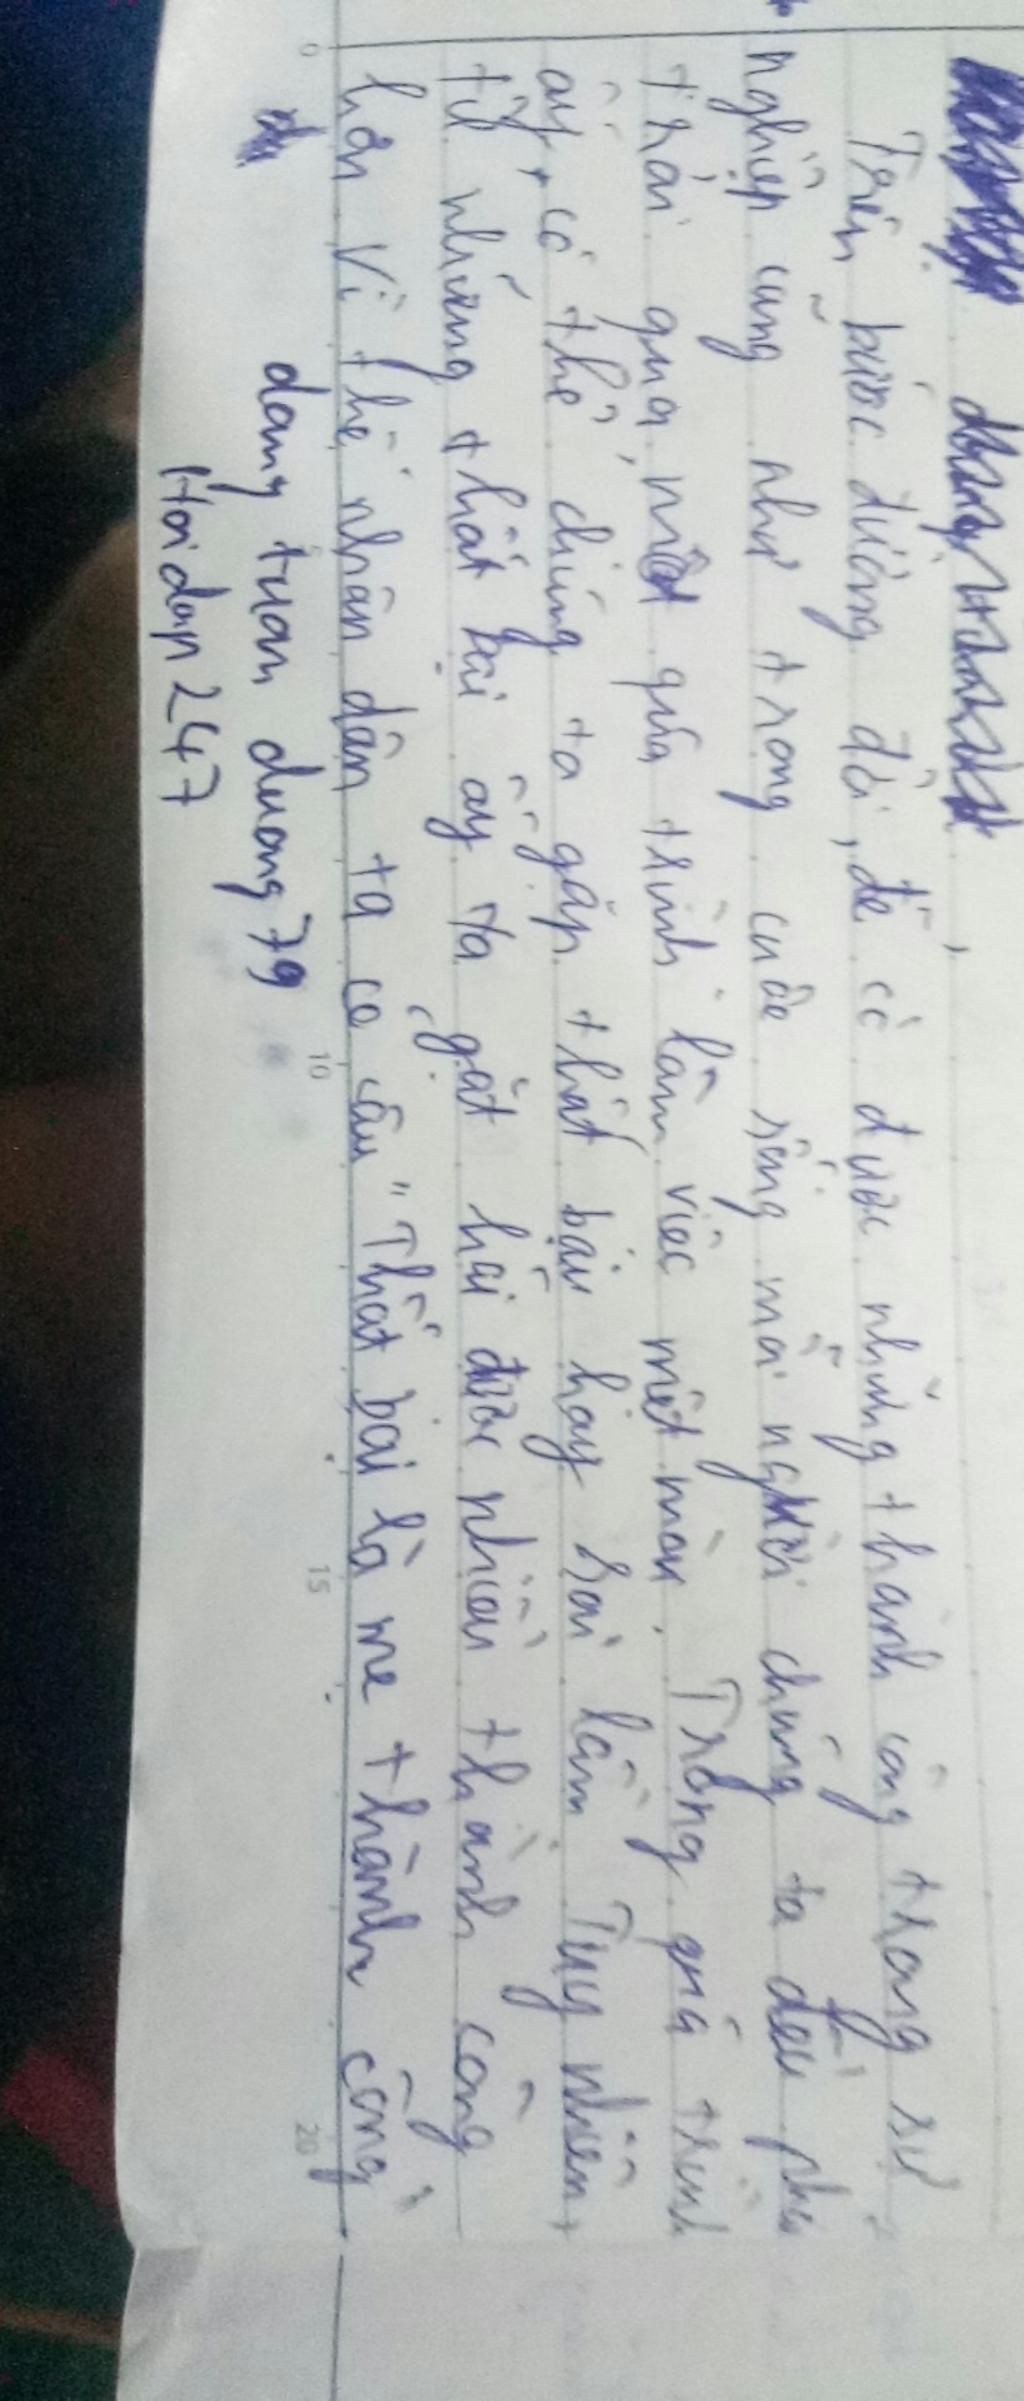 Trên bước đường đời, để có được những thành công trong sự
nghiệp cũng như trong cuộc sống mỗi người chúng ta đều phải
trải qua, một quá trình làm việc miệt mài. Trong quá trình
ấy, có thể chúng ta gặp thất bại hay sai lầm Tuy nhiên
từ những thất bại ấy ta gặt hái được nhiều thành công
hơn Vì thế nhân dân ta có câu "Thất bại là mẹ thành công"
dang tuan duong 79
Hoidap247
0
10
15
20